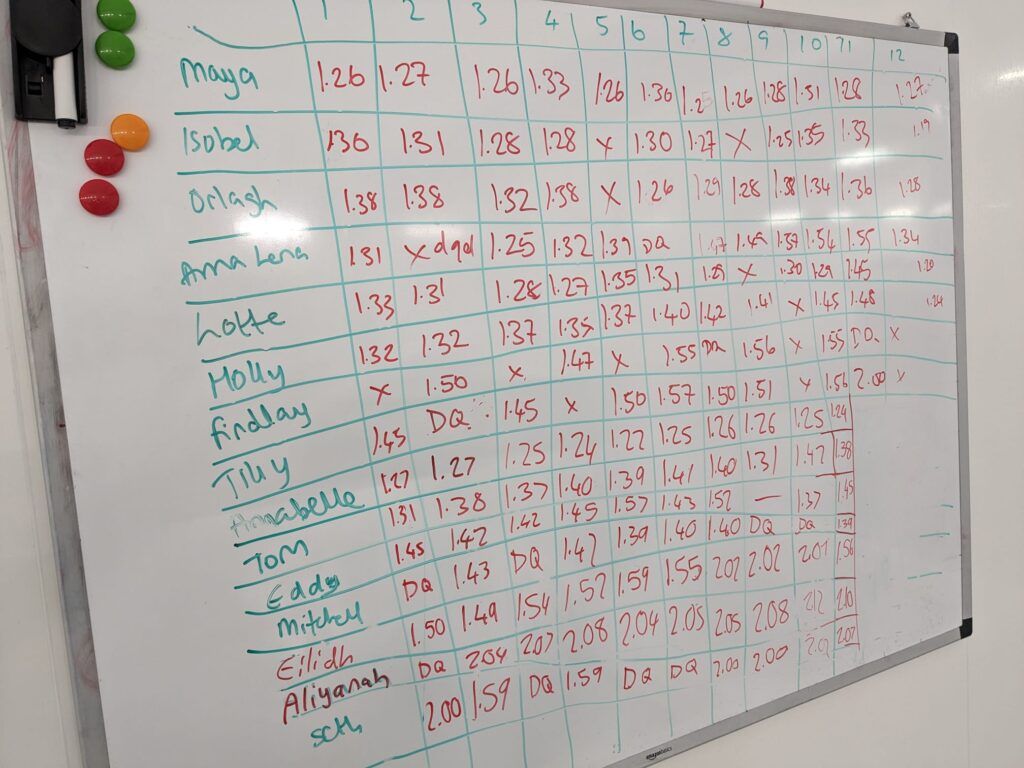 1 2 3 4 5 6 7 8 9 10 11 12
Maya 1.26 1.27 1.26 1.33 1.26 1.30 1.26 1.28 1.31 1.28 1.27
Isobel 1.30 1.31 1.28 1.28 X 1.30 1.27 X 1.25 1.35 1.33 1.19
Orlagh 1.38 1.38 1.32 1.38 X 1.26 1.29 1.28 1.38 1.34 1.36 1.28
Anna Lena 1.31 X dqd 1.25 1.32 1.39 DQ 1.49 1.37 1.54 1.55 1.34
Lotte 1.33 1.31 1.28 1.27 1.35 1.31 1.29 X 1.30 1.29 1.45 1.20
Holly 1.32 1.32 1.37 1.35 1.37 1.40 1.42 1.41 X 1.45 1.48 1.24
Findlay X 1.50 X 1.47 X 1.55 DQ 1.56 X 1.55 DQ X
Tilly 1.45 DQ 1.45 X 1.50 1.57 1.50 1.51 X 1.56 2.00 X
Annabelle 1.27 1.27 1.25 1.24 1.22 1.25 1.26 1.26 1.25 1.24
Tom 1.31 1.38 1.37 1.40 1.39 1.41 1.40 1.31 1.42 1.38
Eddy 1.45 1.42 1.42 1.45 1.57 1.43 1.52 — 1.37 1.45
Mitchell DQ 1.43 DQ 1.42 1.39 1.40 1.40 DQ DQ 1.39
Eilidh 1.50 1.49 1.54 1.52 1.59 1.55 2.02 2.02 2.07 1.56
Aliyanah DQ 2.04 2.07 2.08 2.04 2.05 2.05 2.08 2.12 2.10
Seth 2.00 1.59 DQ 1.59 DQ DQ 2.00 2.00 2.02
amazonbasics